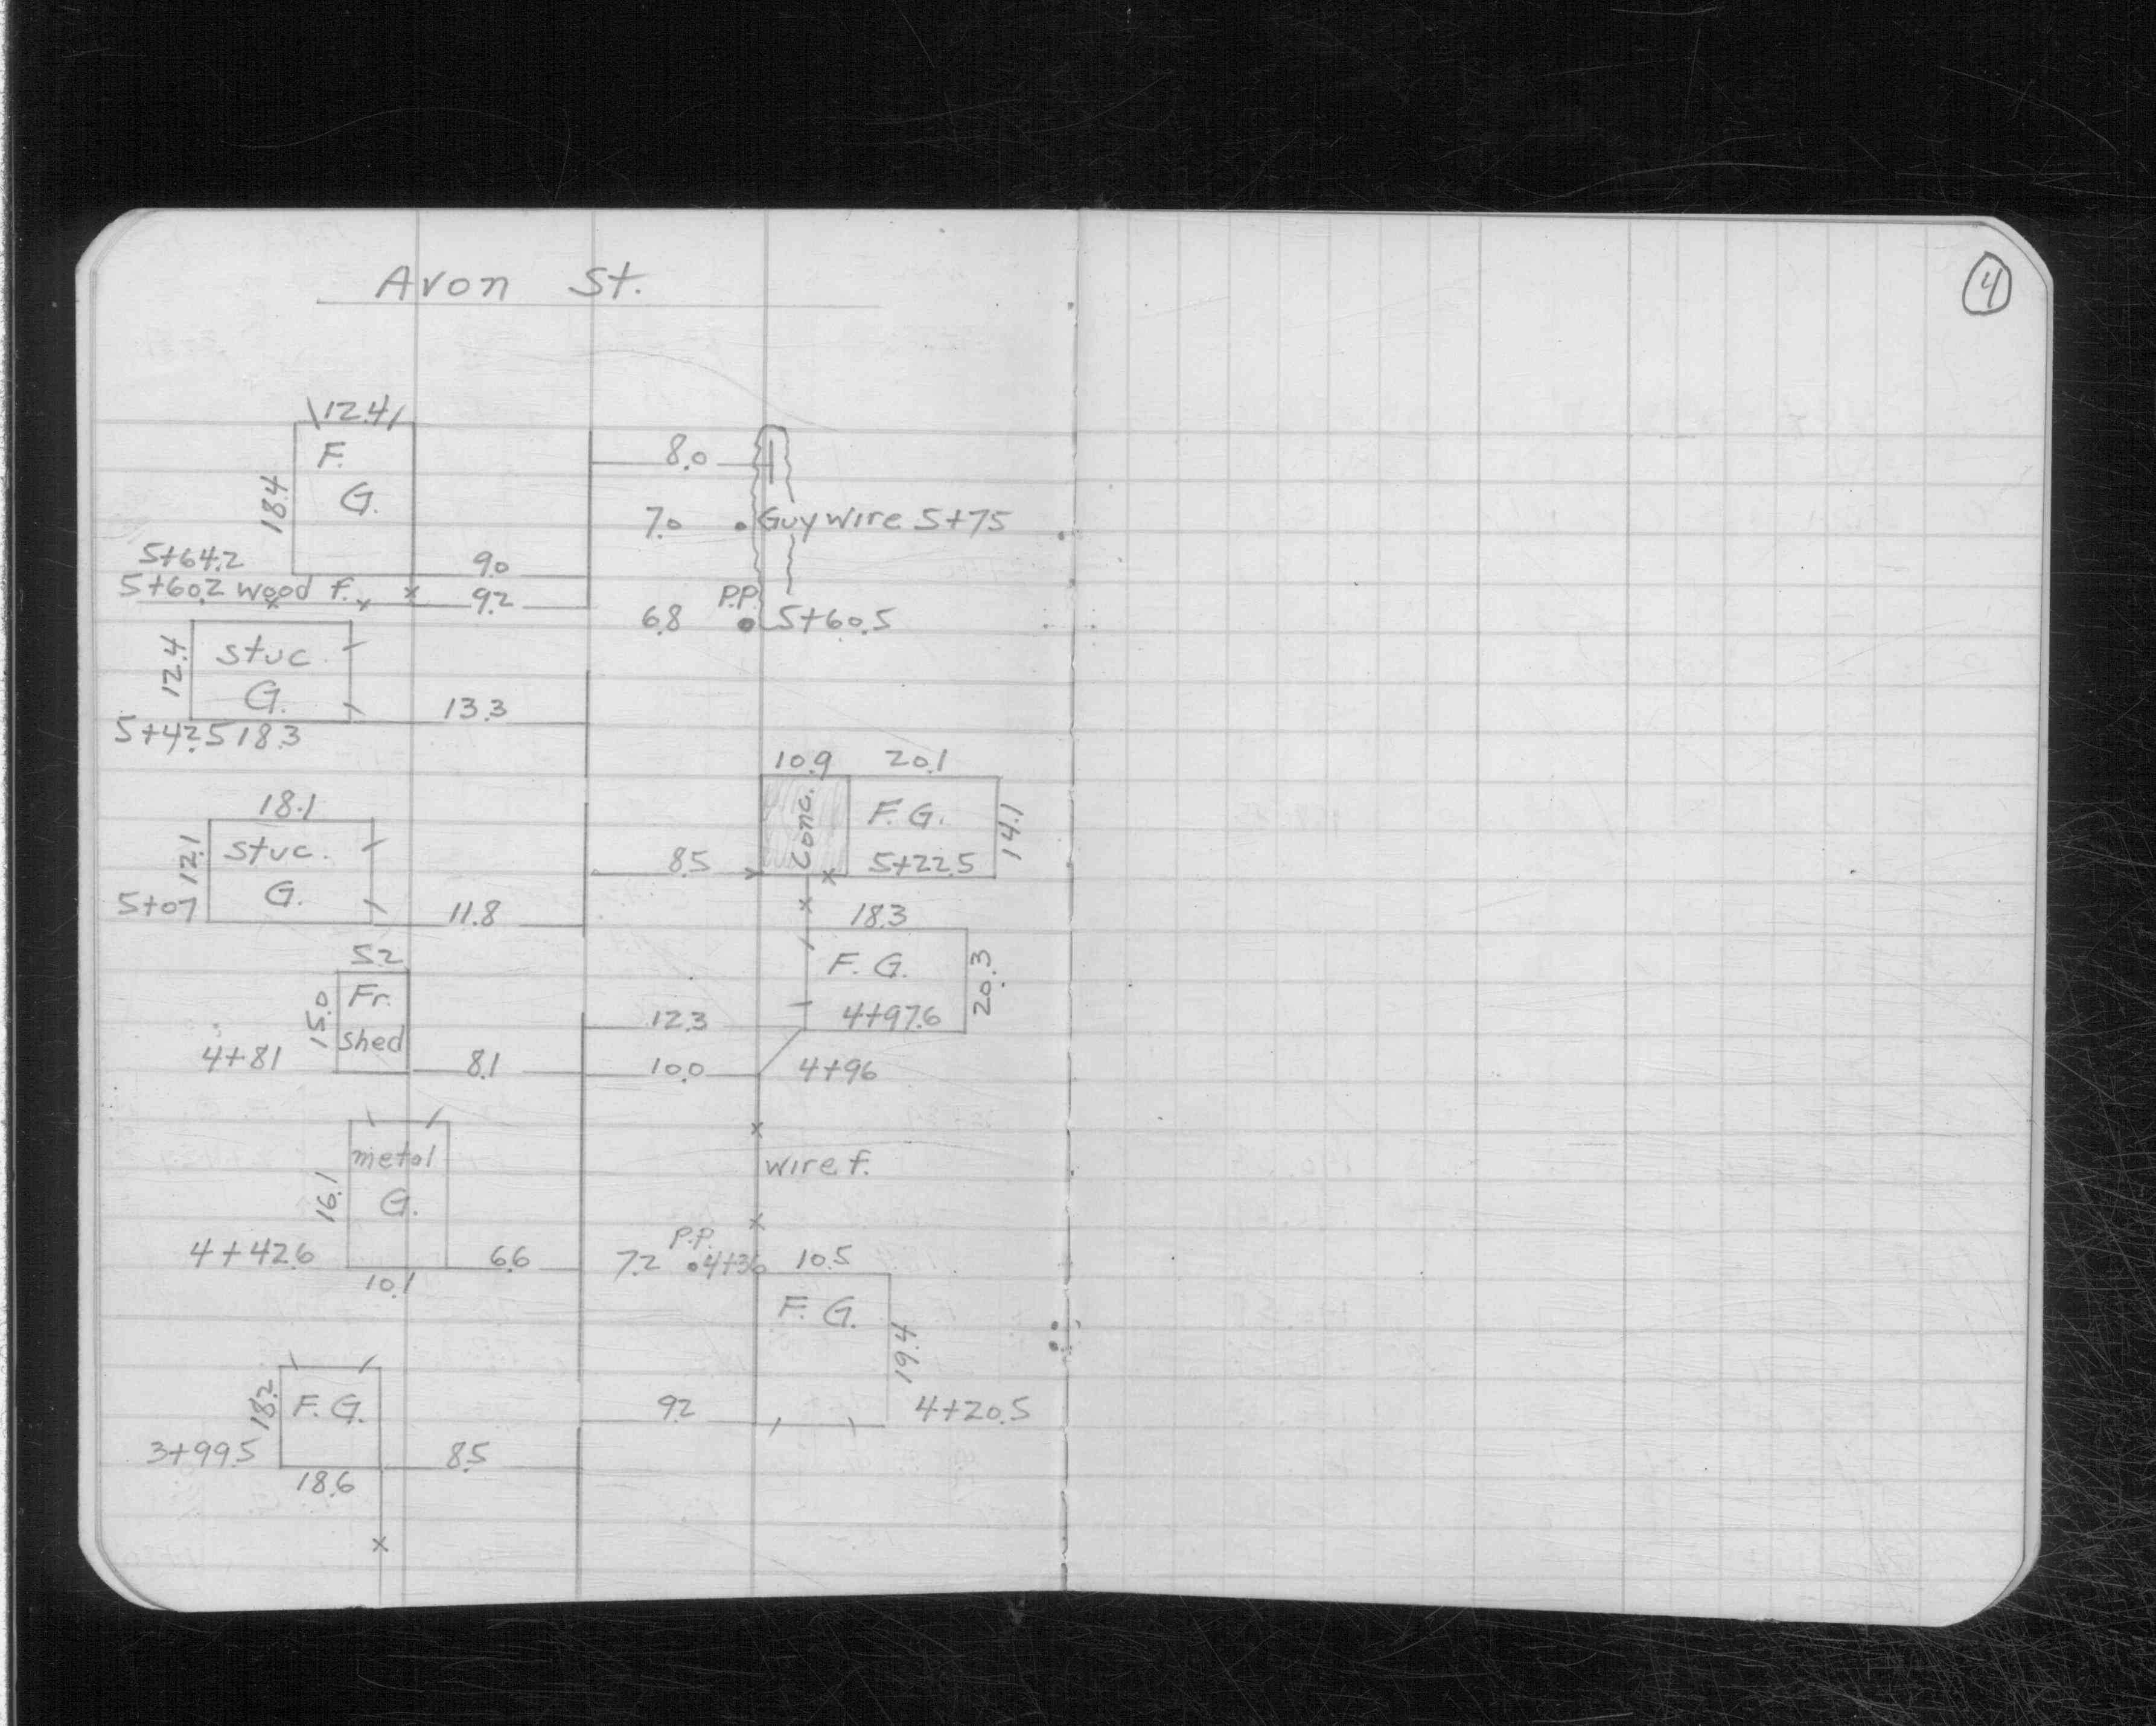 Avon St.
4
12.4
F.
G.
18.4
8.0
7.0 Guy wire 5+75
5+64.2
9.0
5+60.2 wood f.
9.2
P.P.
6.8 5+60.5
12.4
stuc.
G.
13.3
5+42.5 18.3
10.9 20.1
Conc.
F.G.
14.1
5+22.5
8.5
18.1
12.1
stuc.
G.
5+07
11.8
18.3
F.G.
20.3
4+97.6
12.3
5.2
15.0
Fr.
shed
4+81
8.1
10.0
4+96
metal
G.
16.1
wire f.
4+42.6
6.6
10.1
P.P.
7.2 4+36
10.5
F.G.
19.4
9.2
4+20.5
18.2
F.G.
3+99.5
8.5
18.6